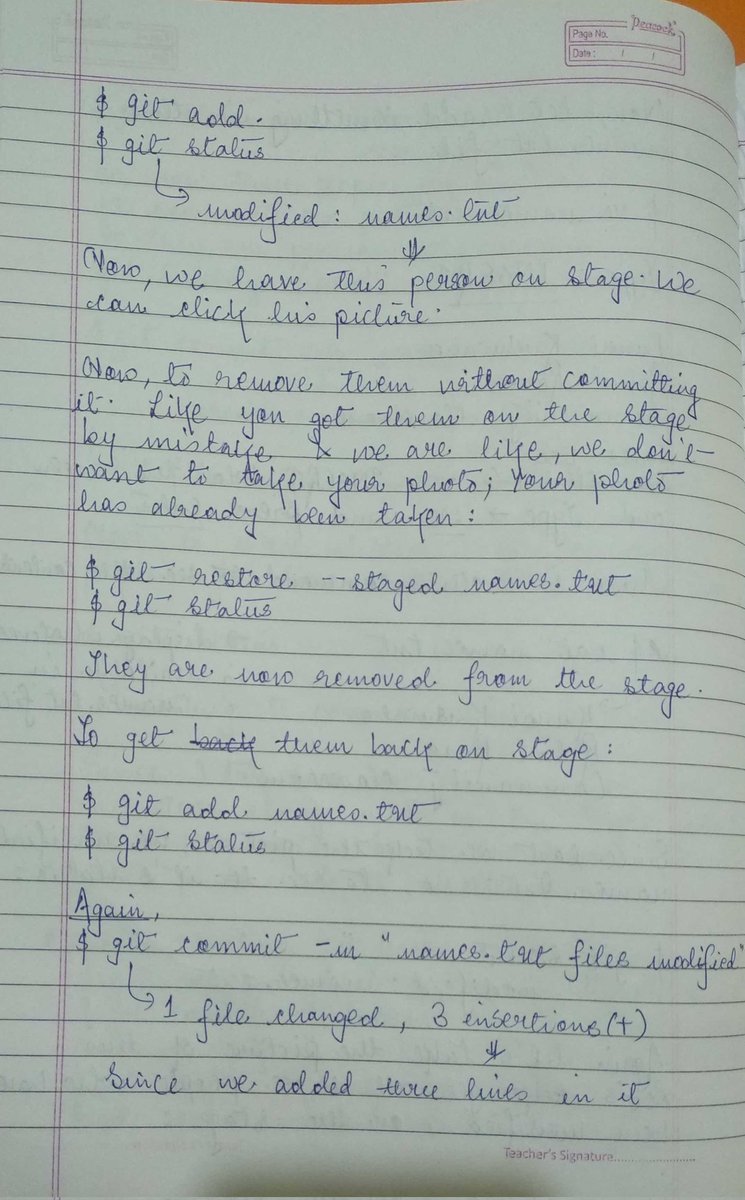 Peacock
Page No.
Date : / /
$ git add .
$ git status
modified : names.txt
Now, we have this person on stage. We
can click his picture.
Now, to remove them without committing
it. Like you got them on the stage
by mistake & we are like, we don't
want to take your photo; Your photo
has already been taken :
$ git restore --staged names.txt
$ git status
They are now removed from the stage.
To get back them back on stage :
$ git add names.txt
$ git status
Again,
$ git commit -m "names.txt files modified"
1 file changed, 3 insertions (+)
Since we added three lines in it
Teacher's Signature....................